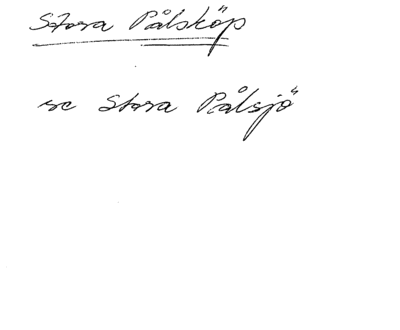 Stora Pålsköp
se Stora Pålsjö